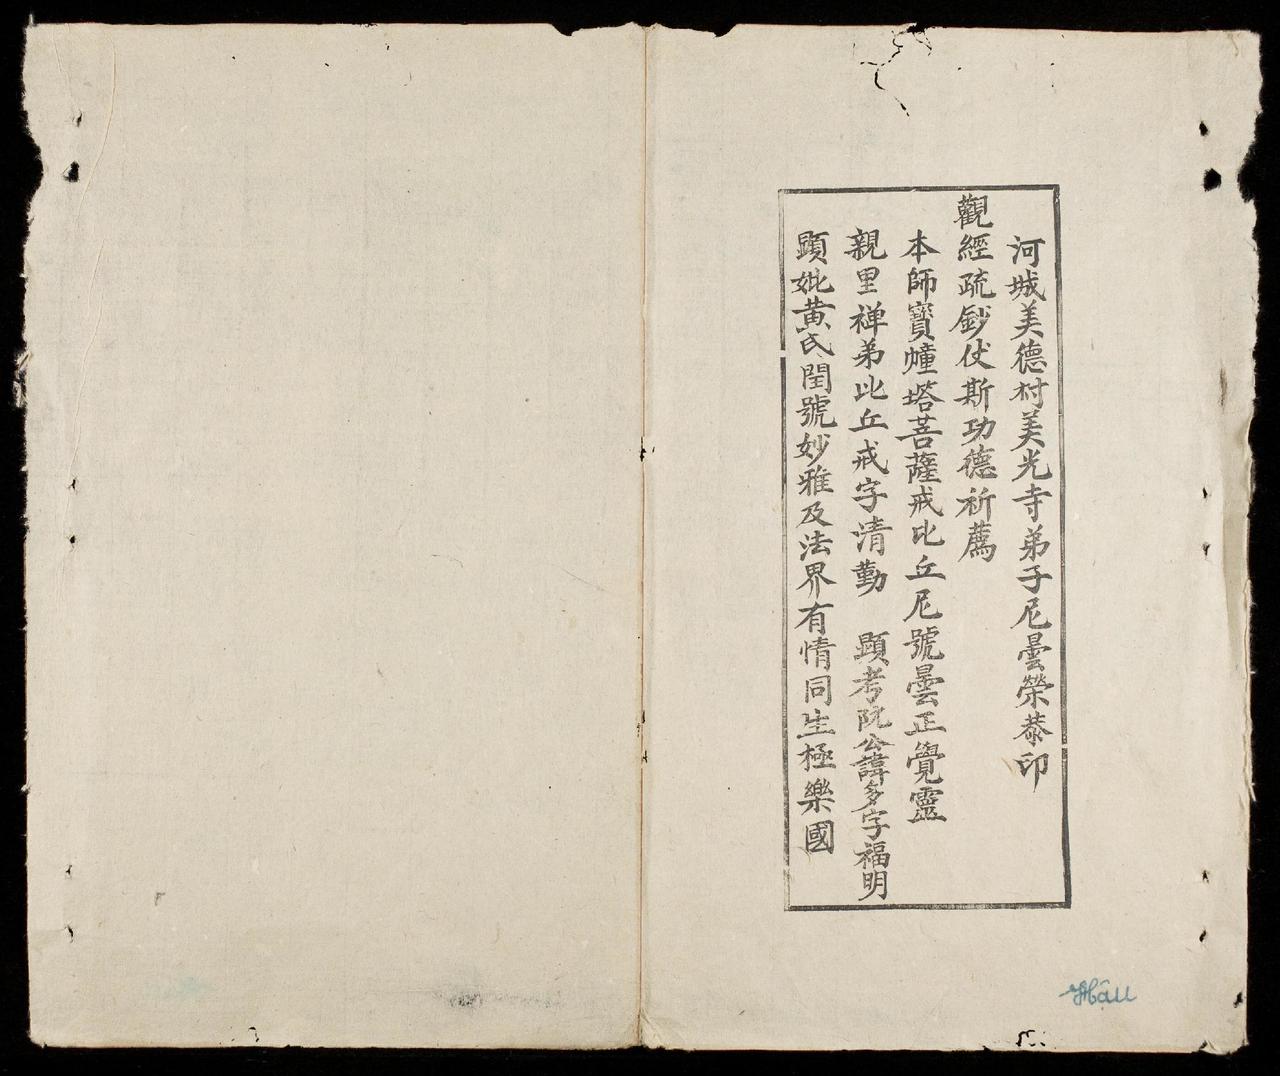 河城美德村美光寺弟子尼曇榮恭印
觀經疏鈔仗斯功德祈薦
本師寶幢塔菩薩戒比丘尼號曇正覺靈
親里禅弟比丘戒字清勤　顕考阮公諱多字福明
顕妣黄氏閏號妙雅及法界有情同生極樂國
Hậu